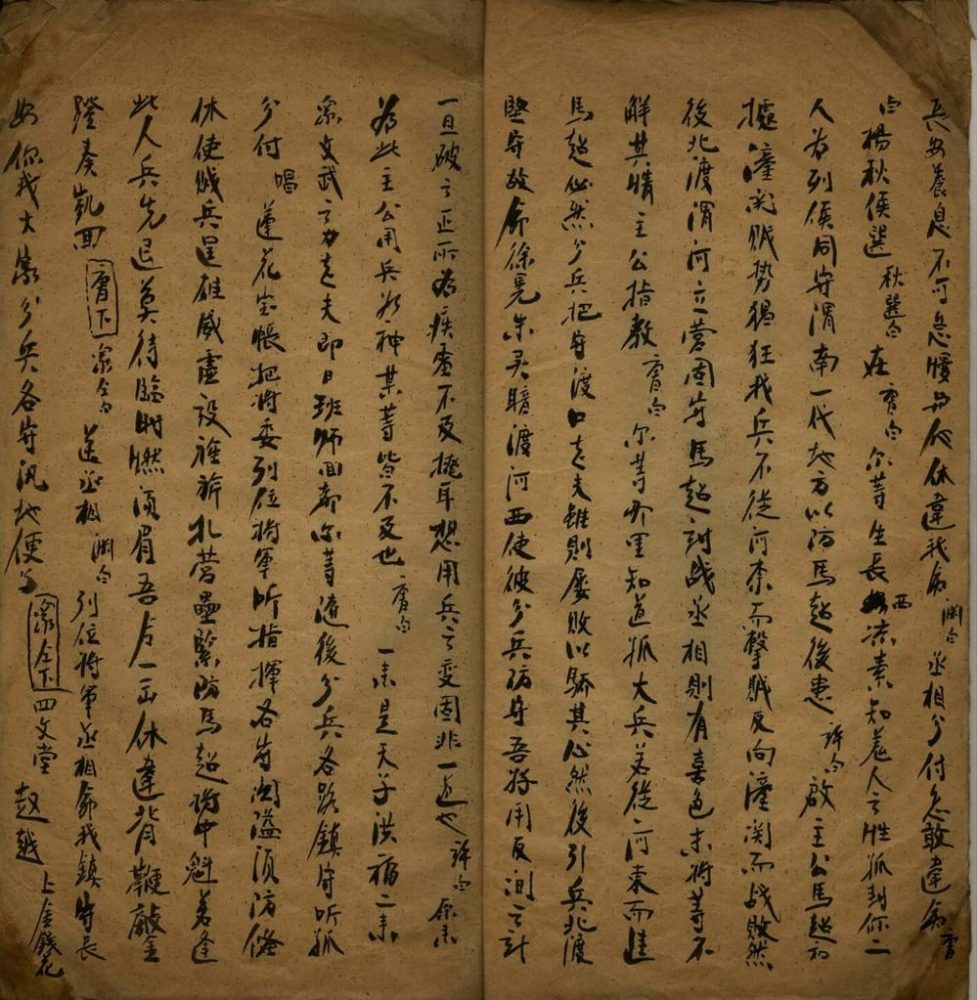 長安養息不可怠慢與代休違我命 渊白 丞相分付怎敢違命 曹
白 楊秋侯選 秋選白 在 曹白 尔等生長西凉素知羗人之性孤封你二
人为列侯同守渭南一代地方以防馬超後患 許白 啟主公馬超初
據潼関賊势猖狂我兵不從河東而擊賊反向潼関而战敗然
後北渡渭河立营固守馬超討战丞相則有喜色末將等不
觧其情主公指教 曹白 尔等那里知道孤大兵若從河東而進
馬超必然分兵把守渡口老夫雖則屡敗以驕其心然後引兵北渡
堅守故命徐晃朱灵暗渡河西使彼分兵防守吾將用反间之計
一旦破之正所为疾雷不及掩耳想用兵之变固非一道也 許白 原来
为此主公用兵如神某等皆不及也 曹白 一来是天子洪福二来
衆文武之力老夫即日班师回都尔等随後分兵各路鎮守听孤
分付 唱 蓮花宝帳把將委列位將軍听指揮各守関溢须防俻
休使贼兵逞雄威虚设旌旂扎营壘緊防馬超詭中魁若逢
此人兵先退莫待臨时燃须眉吾占一缶休違背鞭敲金
蹬奏凱回 曹下 衆仝白 送丞相 渊白 列位將軍丞相命我鎮守長
安你我大家分兵各守汛地便了 衆仝下 四文堂 赵越 上金錢花